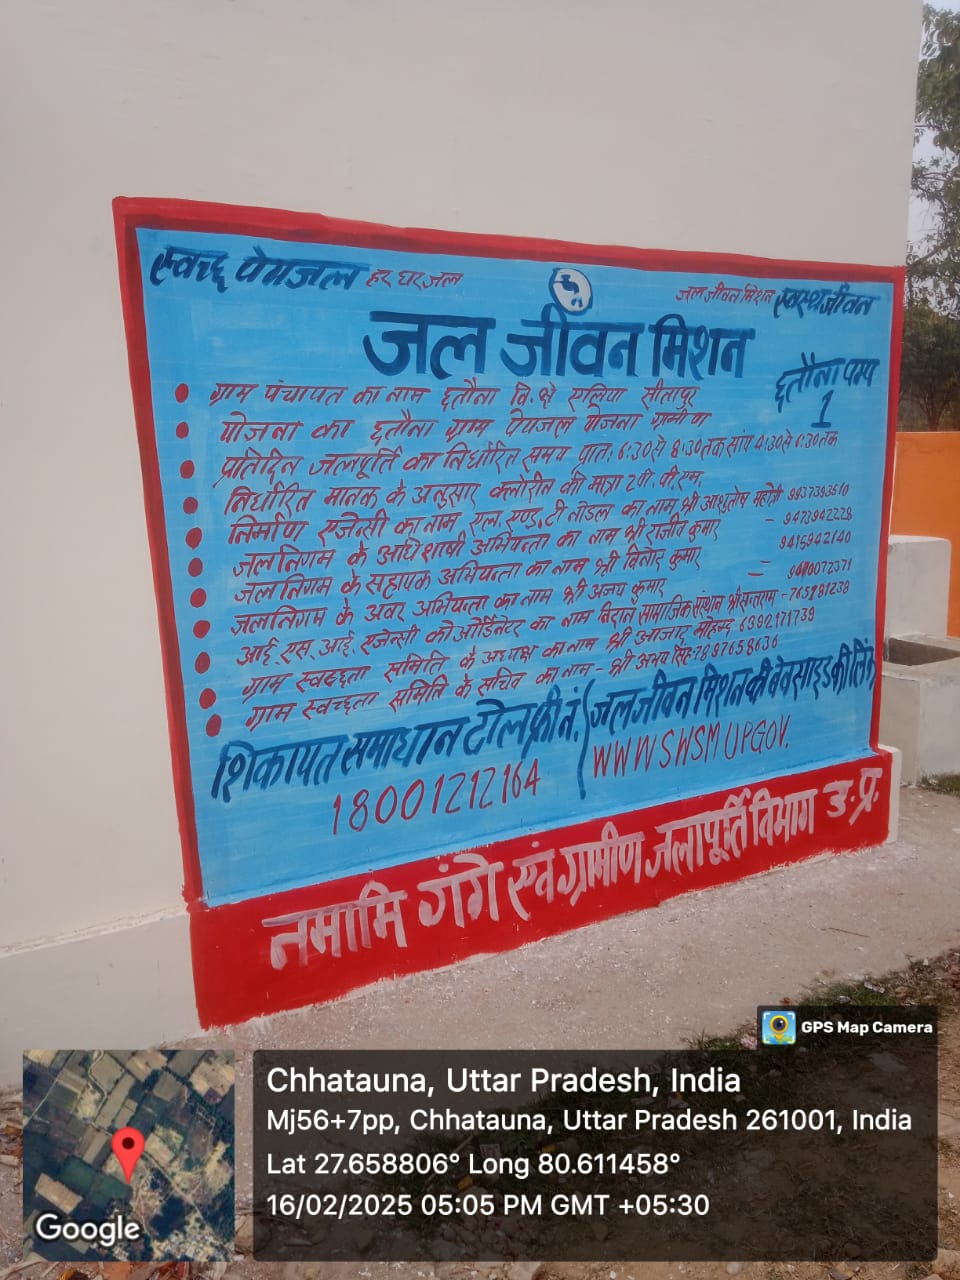 स्वच्छ पेयजल हर घर जल
जल जीवन मिशन स्वस्थ जीवन
जल जीवन मिशन
छतौना पम्प
1
ग्राम पंचायत का नाम छतौना वि.क्षे एलिया सीतापुर
योजना का छतौना ग्राम पेयजल योजना ग्रामीण
प्रतिदिन जलपूर्ति का निर्धारित समय प्रातः 6:30 से 8:30 तक सांय 4:30 से 6:30 तक
निर्धारित मानक के अनुसार क्लोरीन की मात्रा 2 पी.पी.एम.
निर्माण एजेन्सी का नाम एल. एण्ड. टी नोडल का नाम श्री आशुतोष महोत्री 9937393510
जलनिगम के अधिशाषी अभियन्ता का नाम श्री राजीव कुमार - 9473942228
जलनिगम के सहायक अभियन्ता का नाम श्री विनोद कुमार 9415942140
जलनिगम के अवर अभियन्ता का नाम श्री अजय कुमार = 9680072371
आई. एस. आई. एजेन्सी कोऑर्डिनेटर का नाम सामाजिक संस्थान - 765981238
ग्राम स्वच्छता समिति के अध्यक्ष का नाम श्री आजाद मोहम्मद 6392171739
ग्राम स्वच्छता समिति के सचिव का नाम - श्री अभय सिंह 7897658636
शिकायत समाधान टोल फ्री नं.
18001212164
जल जीवन मिशन की वेबसाइड की लिंक
WWWSWSMUPGOV.
नमामि गंगे एंव ग्रामीण जलापूर्ति विभाग उ.प्र.
GPS Map Camera
Chhatauna, Uttar Pradesh, India
Mj56+7pp, Chhatauna, Uttar Pradesh 261001, India
Lat 27.658806° Long 80.611458°
16/02/2025 05:05 PM GMT +05:30
Google